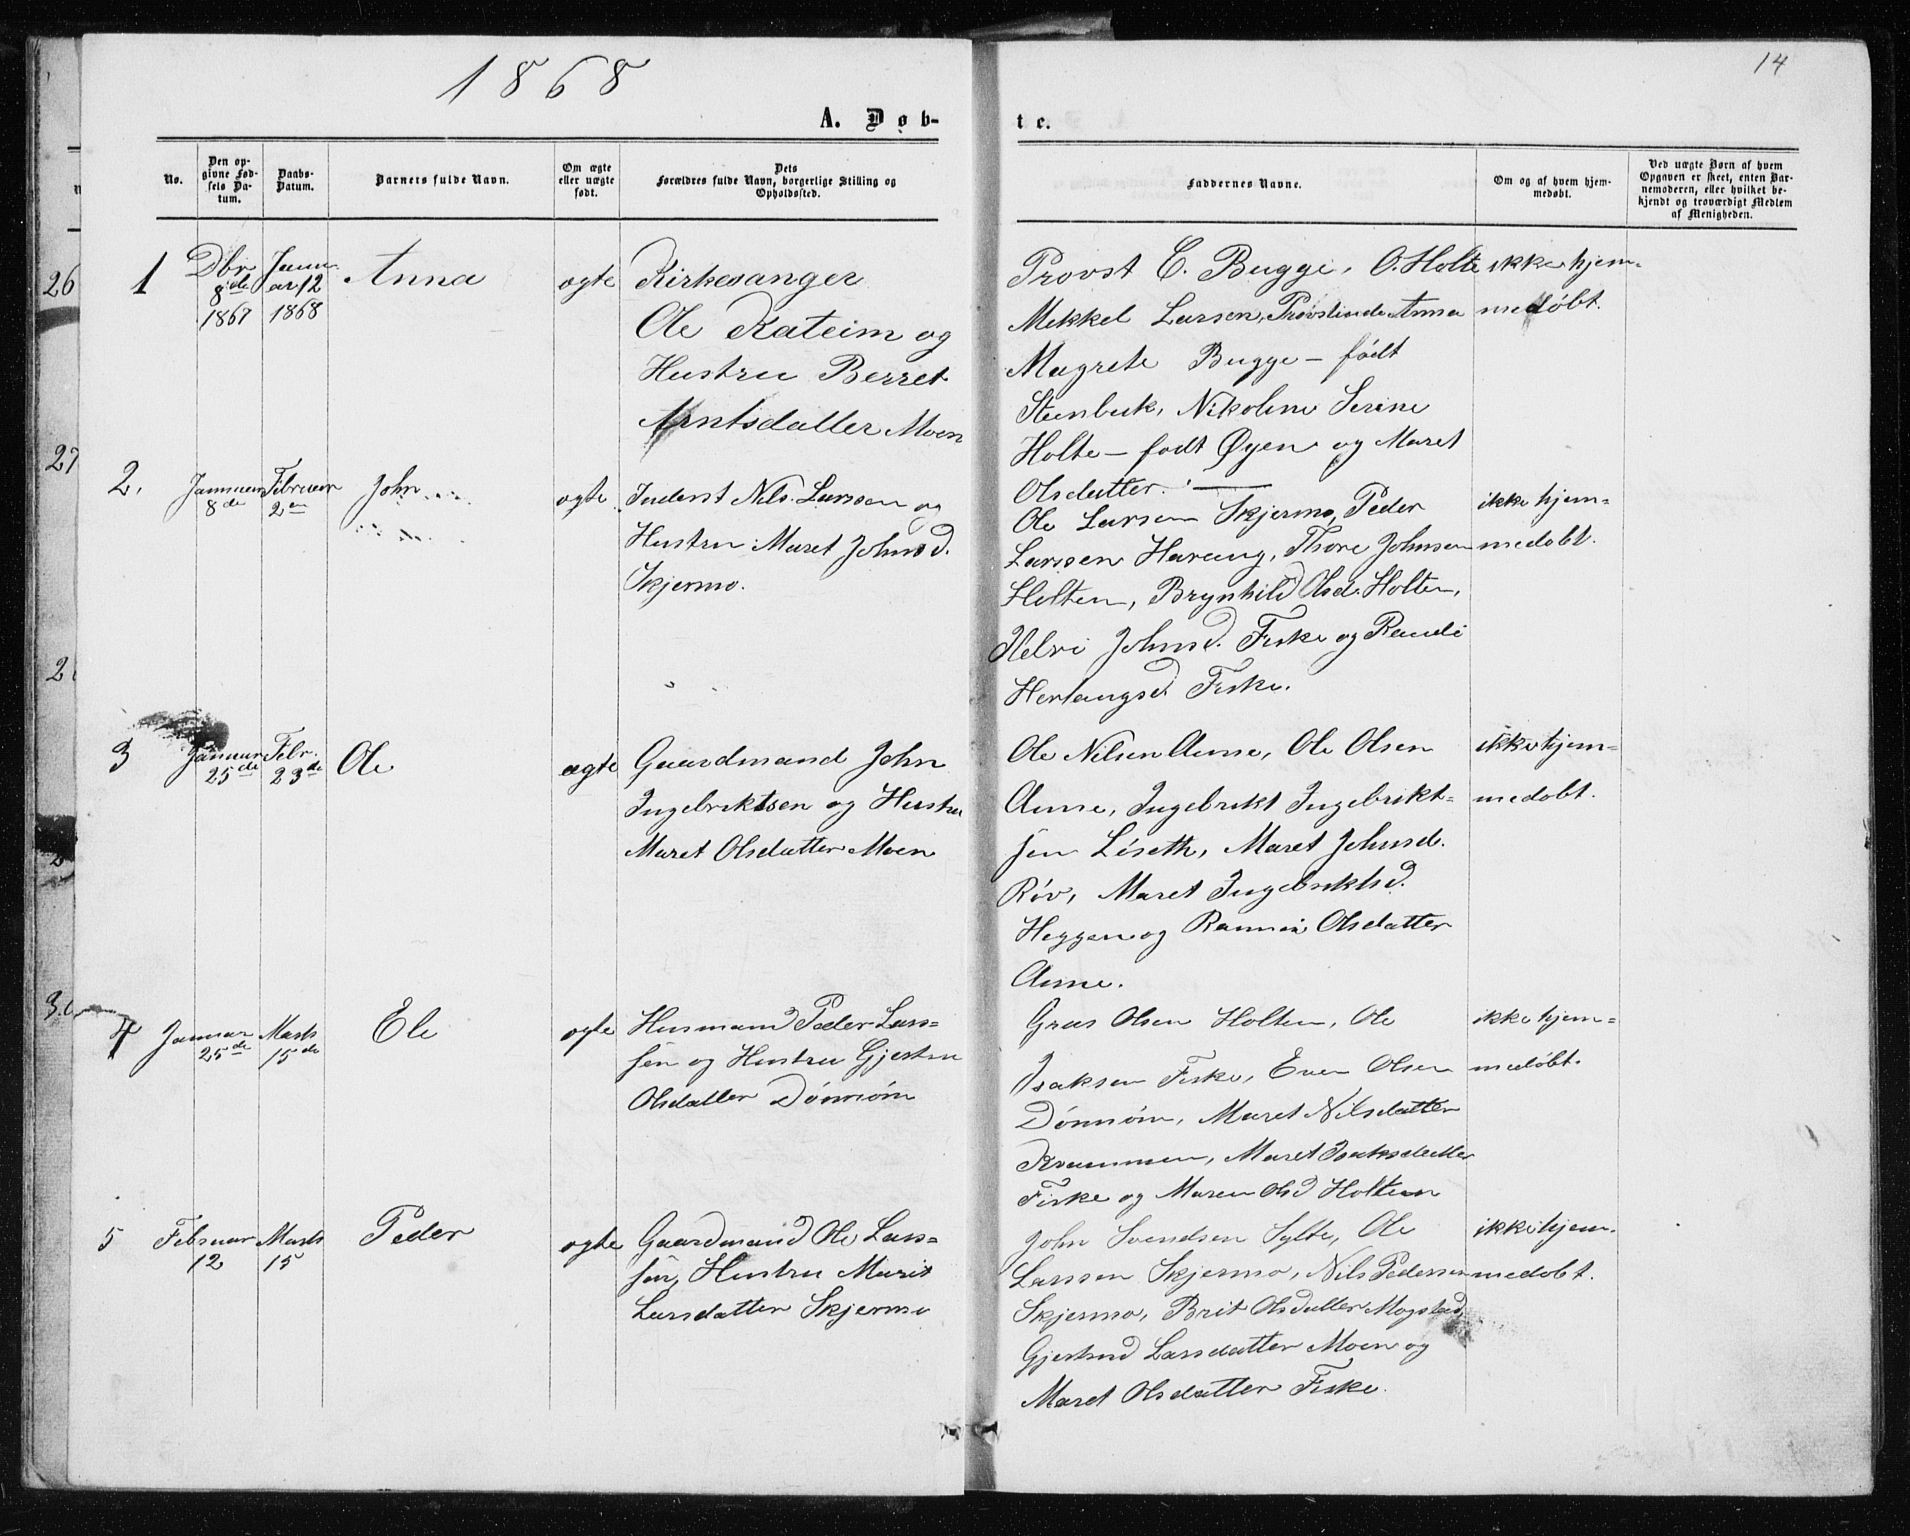 1868
14
A. Døb-
te.
No.
Den op-
givne Fød-
sels Da-
tum.
Daabs-
Datum.
Barnets fulde Navn.
Om ægte
eller uægte
født.
Dets
Forældres fulde Navn, borgerlige Stilling og
Opholdssted.
Faddernes Navne.
Om og af hvem hjem-
medøbt.
Ved uægte Børn af hvem
Opgaven er skeet, enten Bar-
nemoderen, eller hvilket be-
kjendt og troværdigt Medlem
af Menigheden.
26
27
1
Dbr
8de
1867
Janu
ar 12
1868
Anna
ogte
Kirkesanger
Ole Kateim og
Hustru Berret
Arntsdatter Moen
Provst C. Bugge, O. Holte
Mekkel Larsen, Provstinde Anna
Magrete Bugge – født
Steenbuk, Nikoline Serine
Holte – fodt Øyen og Maret
Olsdatter.
ikke hjem-
medøbt.
2.
Januar
8de
Februar
2en
John
ogte
Inderst Nils Larssen og
Hustru Maret Johnsd.
Skjermo.
Ole Larsen Skjermo, Peder
Larssen Harang, Thore Johnsen
Holten, Brynhild Olsd. Holten,
Helvi Johnsd. Fiske og Randi
Herlaugsd. Fiske.
ikke hjem-
medobt.
3
Januar
25de
Febr.
23de
Ole
ægte
Gaardmand John
Ingebriktsen og Hustru
Maret Olsdatter Moen
Ole Nilsen Aune, Ole Olsen
Aune, Ingebrikt Ingebrikt-
sen Löseth, Maret Johnsd.
Röv, Maret Ingebriktsd.
Heggen og Olsdatter
Aune.
ikke hjem-
medobt.
4
Januar
25de
Marts
15de
Ele
ogte
Husmand Peder Lars-
sen og Hustru Gjertru
Olsdatter Dönnöm
Olsen Holten, Ole
Isaksen Fiske, Even Olsen
Dönnöm, Maret Nilsdatter
Krammen, Maret Isaksdatter
Fiske og Maren Olsd Holten
ikke hjem-
medøbt.
5
Februar
12
Marts
15
Peder
ogte
Gaardmand Ole Lars-
sen, Hustru Marit
Larsdatter Skjermo
John Svendsen Sylte, Ole
Larssen Skjermo, Nils Pedersen
Skjermo, Brit Olsdatter Mogstad,
Gjertrud Larsdatter Moen og
Maret Olsdatter Fiske.
ikke hjem.
medobt.